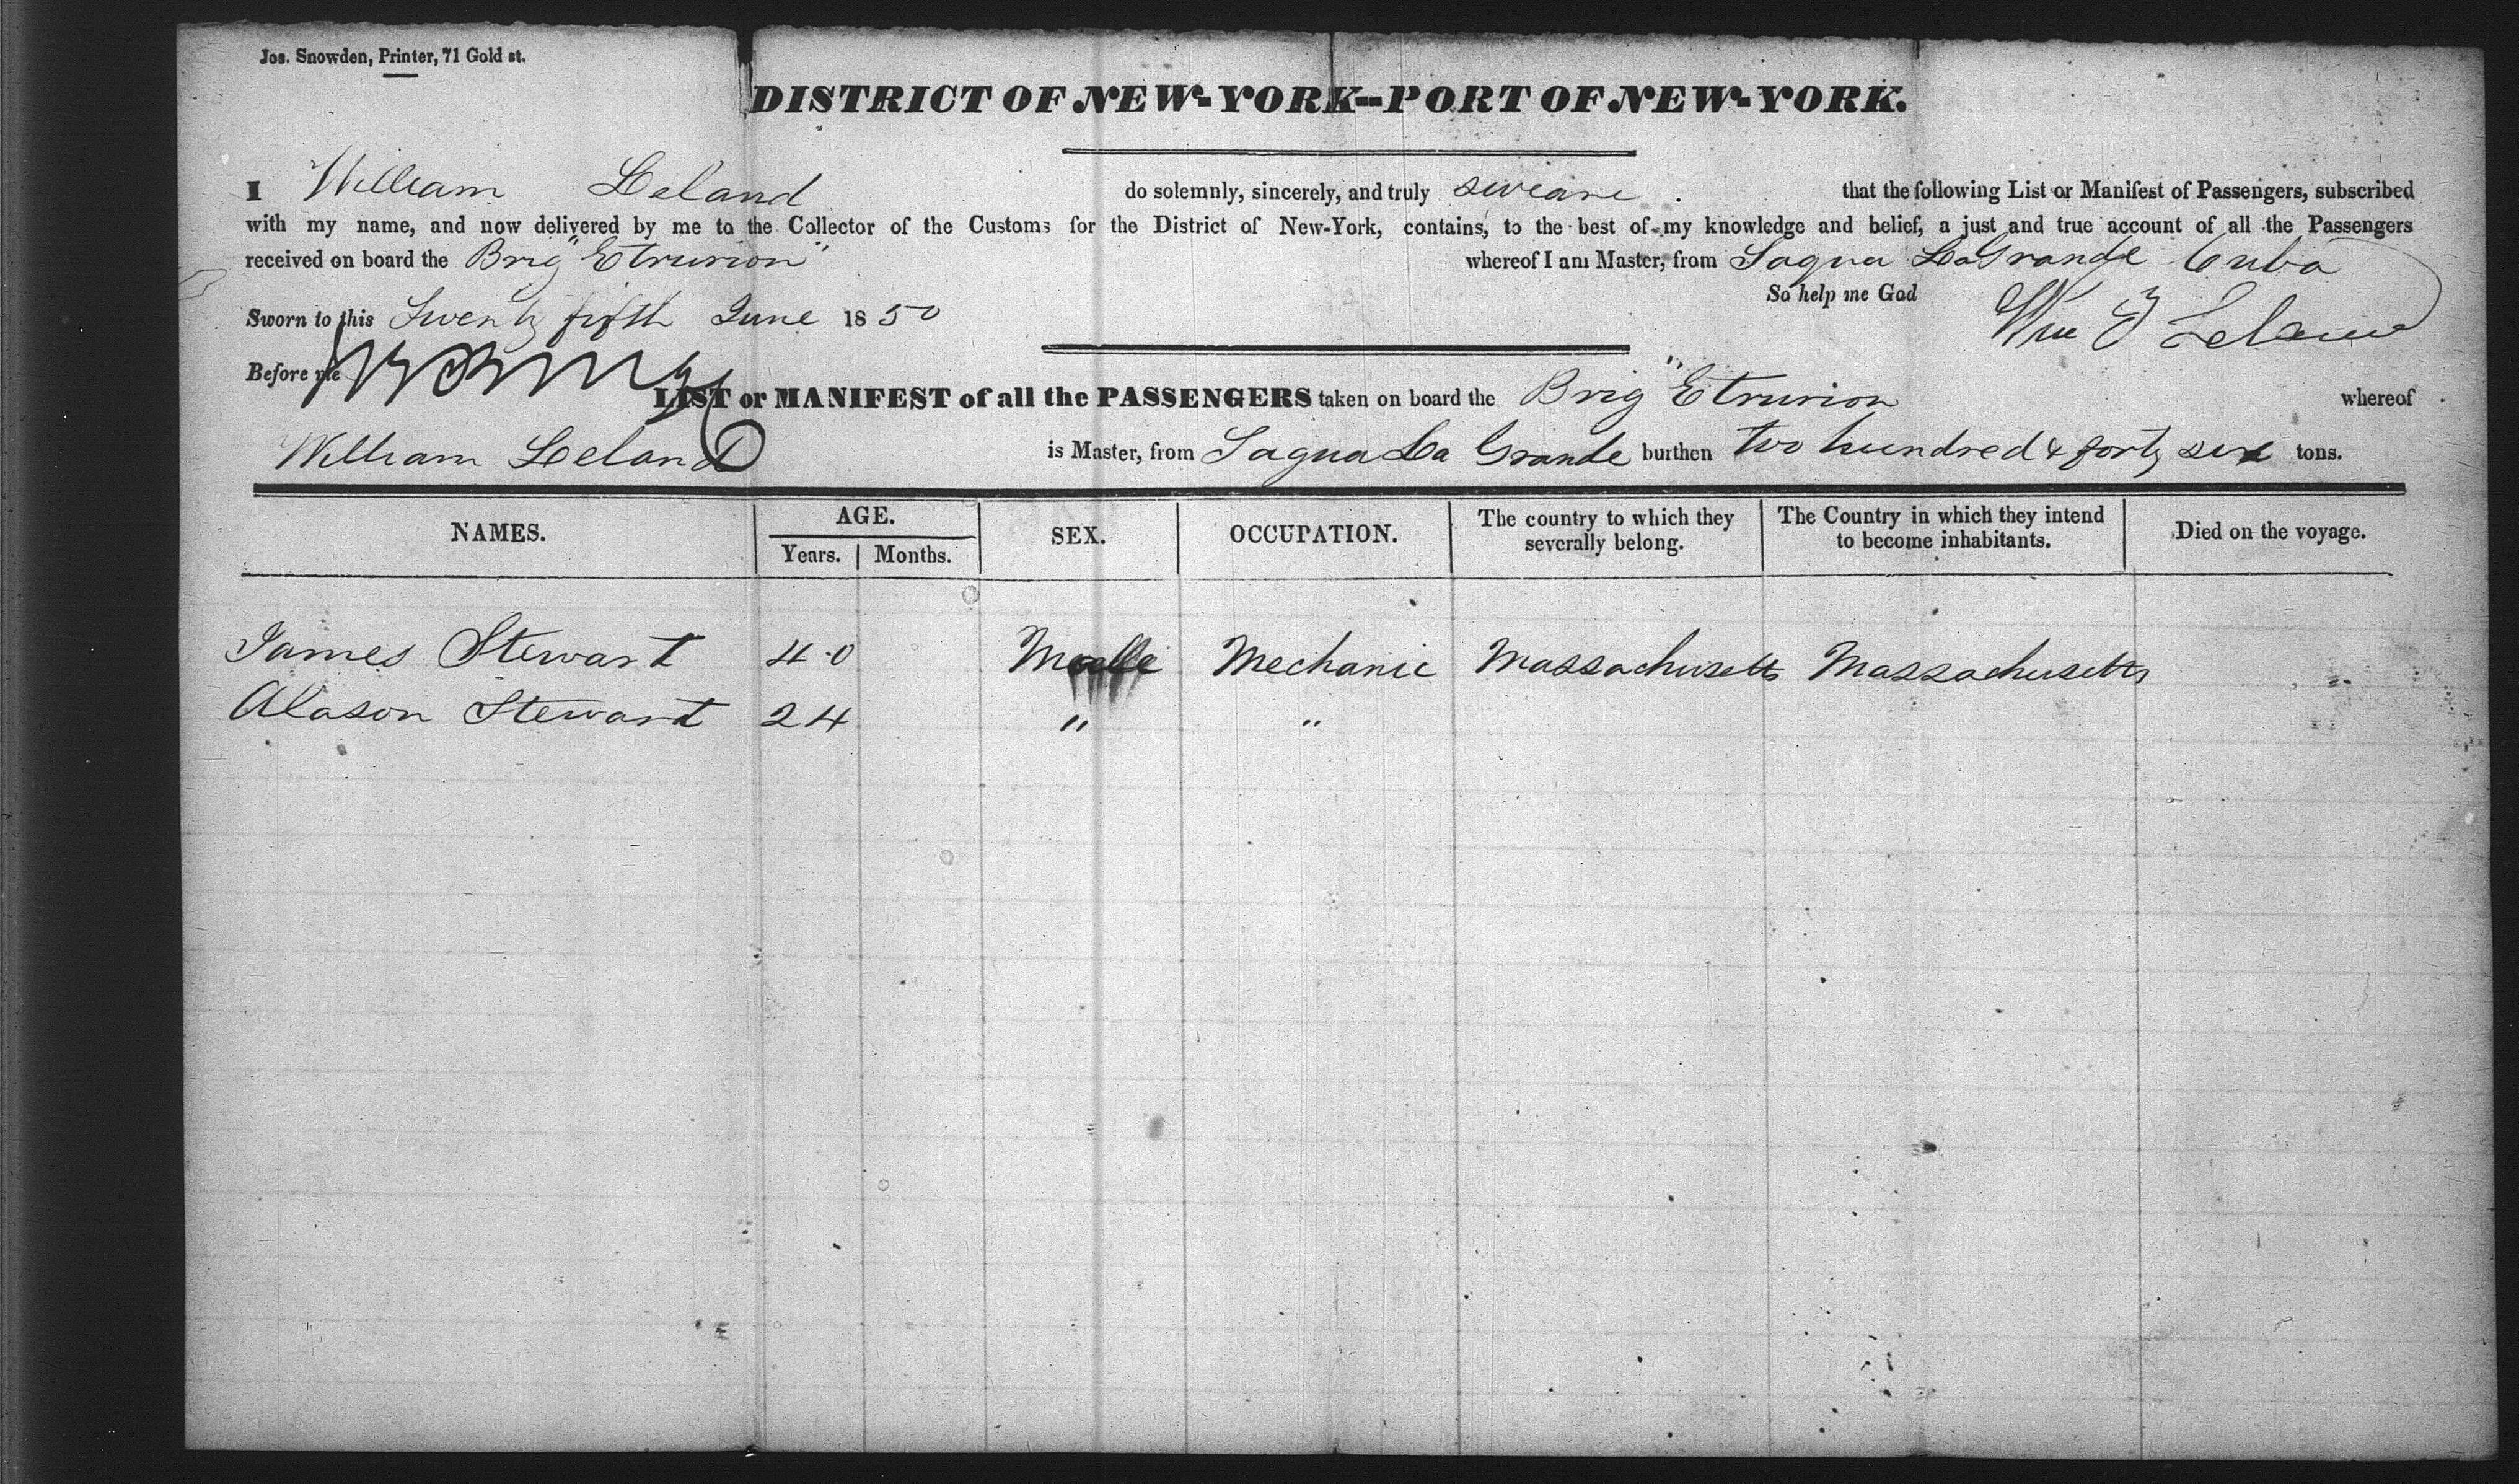 Jos. Snowden, Printer, 71 Gold st.
DISTRICT OF NEW-YORK--PORT OF NEW-YORK.
I William Leland do solemnly, sincerely, and truly sweare that the following List or Manifest of Passengers, subscribed
with my name, and now delivered by me to the Collector of the Customs for the District of New-York, contains, to the best of my knowledge and belief, a just and true account of all the Passengers
received on board the Brig "Etrurion" whereof I am Master, from Sagua La Grande Cuba
So help me God
Sworn to this Twenty fifth June 1850 Wm Leland
Before me
LIST or MANIFEST of all the PASSENGERS taken on board the Brig "Etrurion whereof
William Leland is Master, from Sagua La Grande burthen two hundred & forty six tons.
NAMES. AGE. Years. Months. SEX. OCCUPATION. The country to which they severally belong. The Country in which they intend to become inhabitants. Died on the voyage.
James Stewart 40 Male Mechanic Massachusetts Massachusetts
Alason Stewart 24 " "